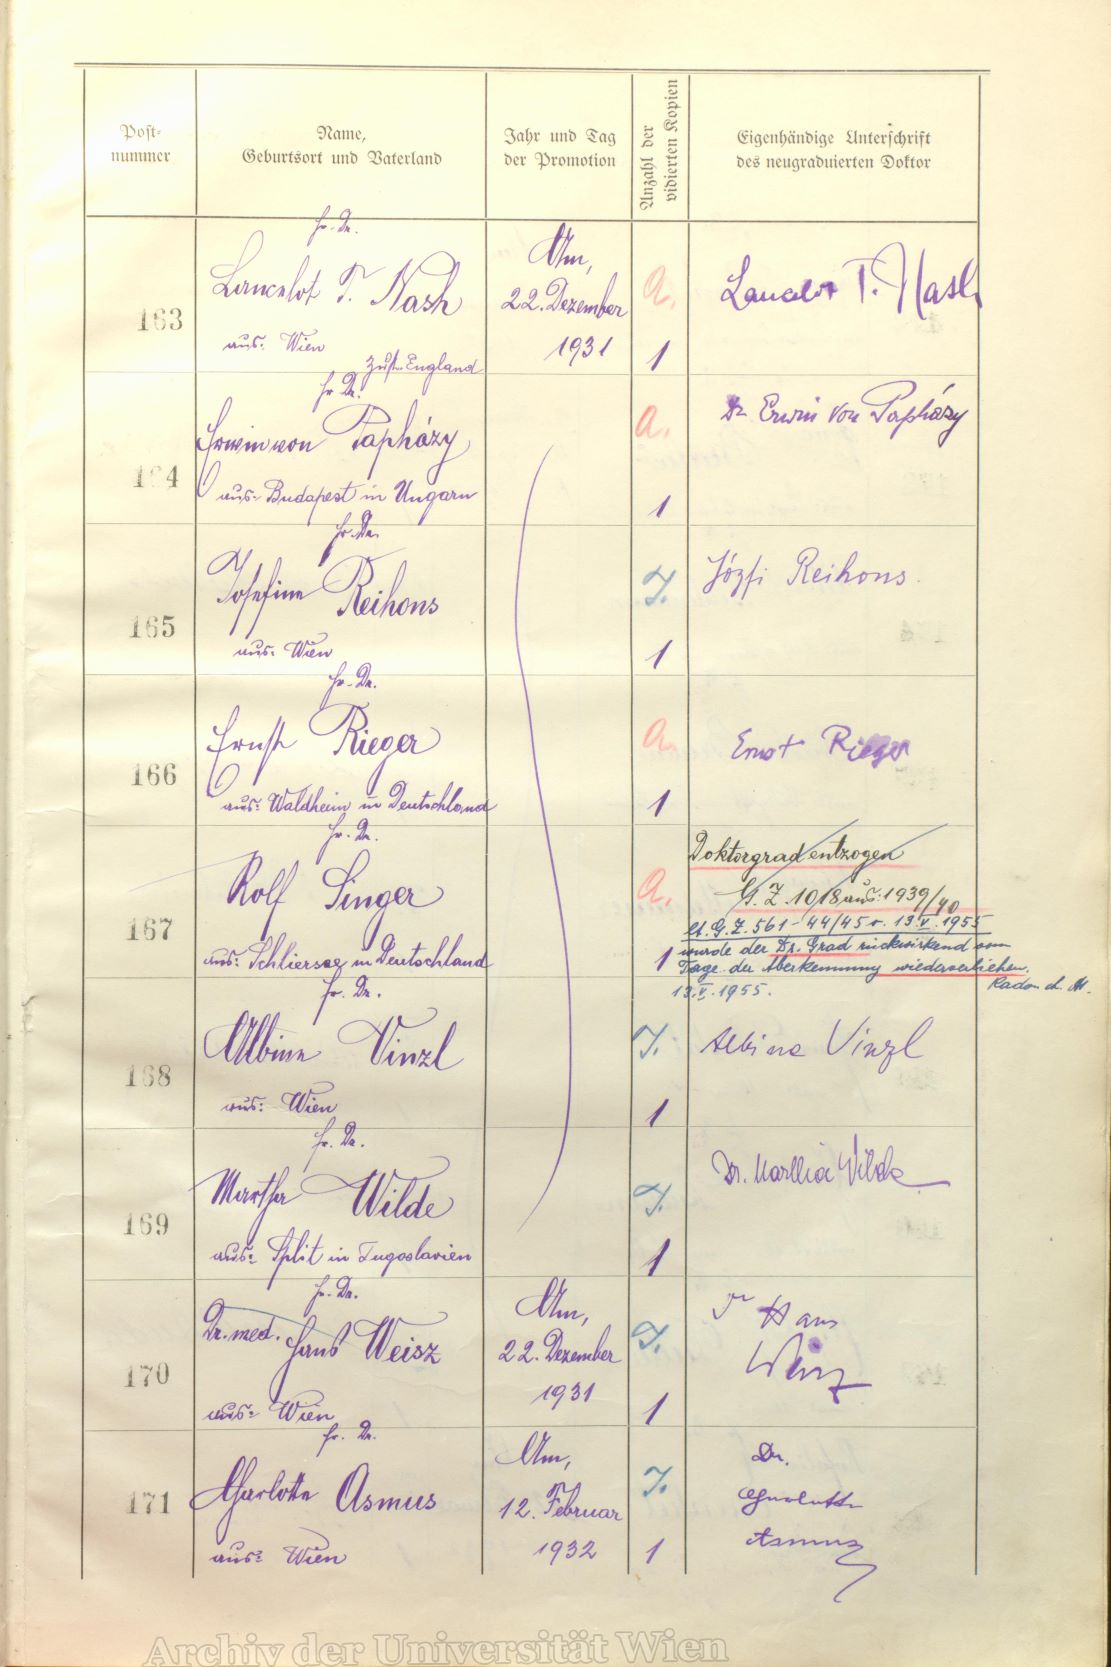 Post-
nummer
Name,
Geburtsort und Vaterland
Jahr und Tag
der Promotion
Anzahl der
vidierten Kopien
Eigenhändige Unterschrift
des neugraduierten Doktor
163
Hr. Dr.
Lancelot T. Nash
aus: Wien
zust. England
Am,
22. Dezember
1931
A.
1
Lancelot T. Nash
164
Hr. Dr.
Erwin von Papházy
aus: Budapest in Ungarn
A.
1
Dr Erwin von Papházy
165
Fr. Dr.
Josefine Reihons
aus: Wien
I.
1
Józsi Reihons.
166
Hr. Dr.
Ernst Rieger
aus: Waldheim in Deutschland
A.
1
Ernst Rieger
167
Hr. Dr.
Rolf Singer
aus: Schliersee in Deutschland
A.
1
Doktorgrad entzogen
G. Z. 1018 aus: 1939/40
lt. G. Z. 561 - 44/45 v. 13.V.1955
wurde der Dr. Grad rückwirkend vom
Tage der Aberkennung wiederverliehen.
13.V.1955.
Radon d. M.
168
Fr. Dr.
Albine Vinzl
aus: Wien
I.
1
Albine Vinzl
169
Fr. Dr.
Martha Wilde
aus: Split in Jugoslavien
I.
1
Dr. Martha Wilde
170
Hr. Dr.
Dr. med. Hans Weisz
aus: Wien
Am,
22. Dezember
1931
I.
1
Dr Hans
Weisz
171
Fr. Dr.
Charlotte Asmus
aus: Wien
Am,
12. Februar
1932
I.
1
Dr.
Charlotte
Asmus
Archiv der Universität Wien